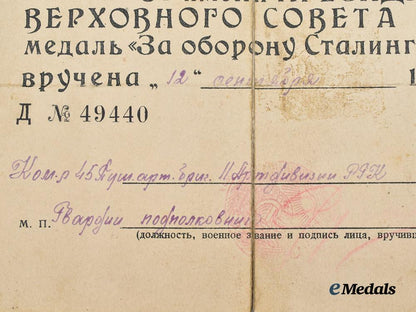 ВЕРХОВНОГО СОВЕТА
медаль «За оборону Сталинг
вручена „12“ сентября 1
Д № 49440
Ком-р 45 Пуш. арт. бриг. 11 Артдивизии РГК
М. П. Гвардии подполковник
(должность, военное звание и подпись лица, вручив
eMedals